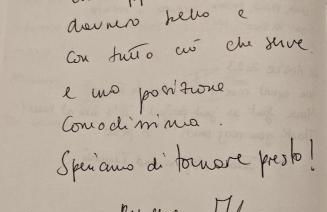 davvero bello e
con tutto ciò che serve
e una posizione
comodissima.
Speriamo di tornare presto!